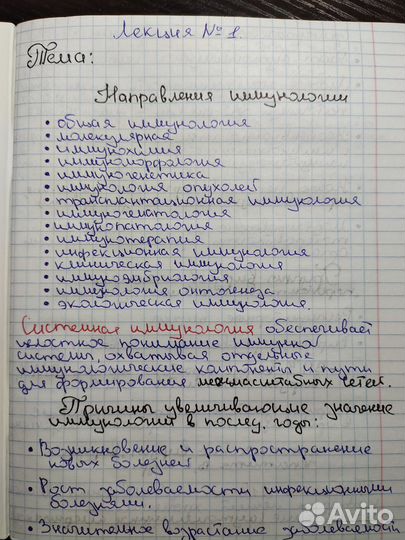 Лекция № 1.
Тема:
Направления иммунологии
• общая иммунология
• молекулярная
• иммунохимия
• иммуноморфология
• иммуногенетика
• иммунология опухолей
• трансплантационная иммунология
• иммуногематология
• иммунопатология
• иммунотерапия
• инфекционная иммунология
• клиническая иммунология
• иммуноэмбриология
• иммунология онтогенеза
• экологическая иммунология
Системная иммунология обеспечивает
целостное понимание иммунной
системы, охватывая отдельные
иммунологические компоненты и пути
для формирования межмасштабных сетей.
Причины увеличивающие значение
иммунологии в послед. годы:
• Возникновение и распространение
новых болезней
• Рост заболеваемости инфекционными
болезнями.
• Значительное возрастание заболеваемости
Avito